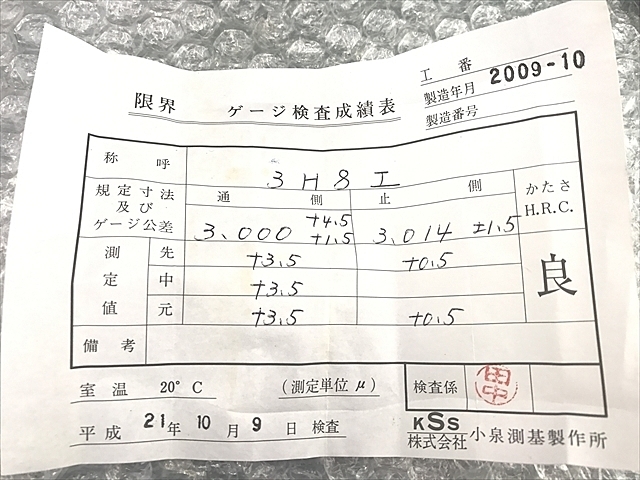 工番
限界 ゲージ検査成績表
製造年月 2009-10
製造番号
称呼 3H8工
規定寸法及びゲージ公差 通側 止側 かたさ H.R.C.
3.000 +4.5 +1.5 3.014 ±1.5
測定値 先 +3.5 +0.5 良
中 +3.5
元 +3.5 +0.5
備考
室温 20°C (測定単位μ) 検査係 田中
平成 21年 10月 9日 検査
KSS
株式会社 小泉測基製作所